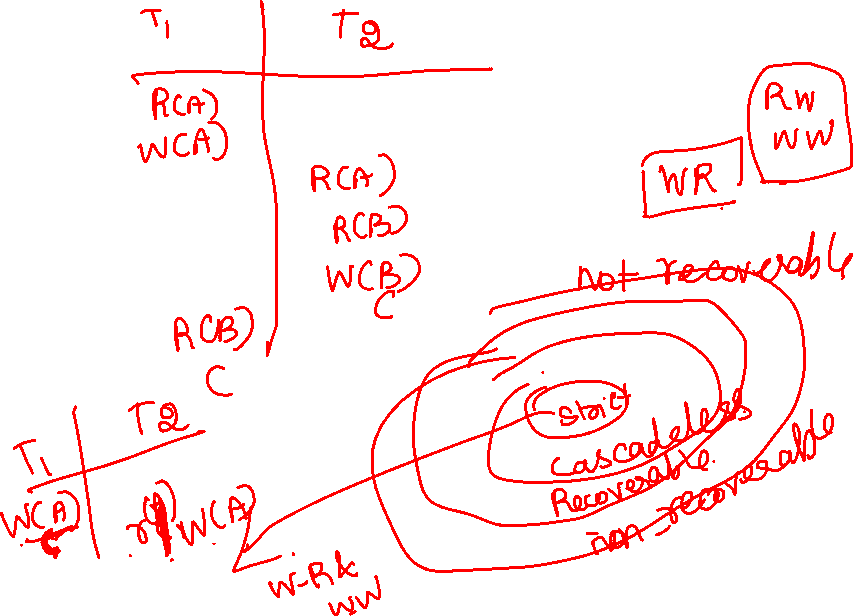 T1 T2
R(A)
W(A)
R(A)
R(B)
W(B)
C
R(B)
C
RW
WW
WR
not recoverable
Strict
Cascadeless
Recoverable.
non-recoverable
T1 T2
W(A) W(A)
W-R &
WW